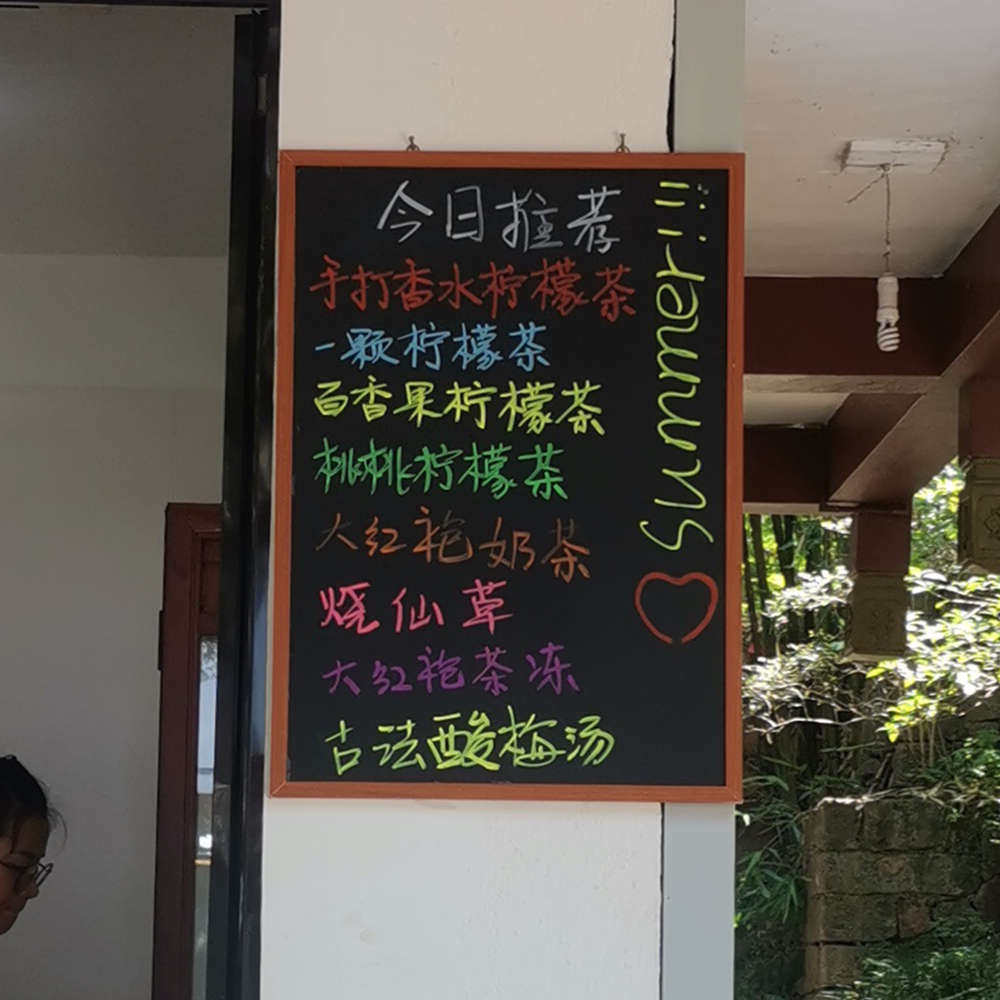 今日推荐
手打香水柠檬茶
一颗柠檬茶
百香果柠檬茶
桃桃柠檬茶
大红袍奶茶
烧仙草
大红袍茶冻
古法酸梅汤